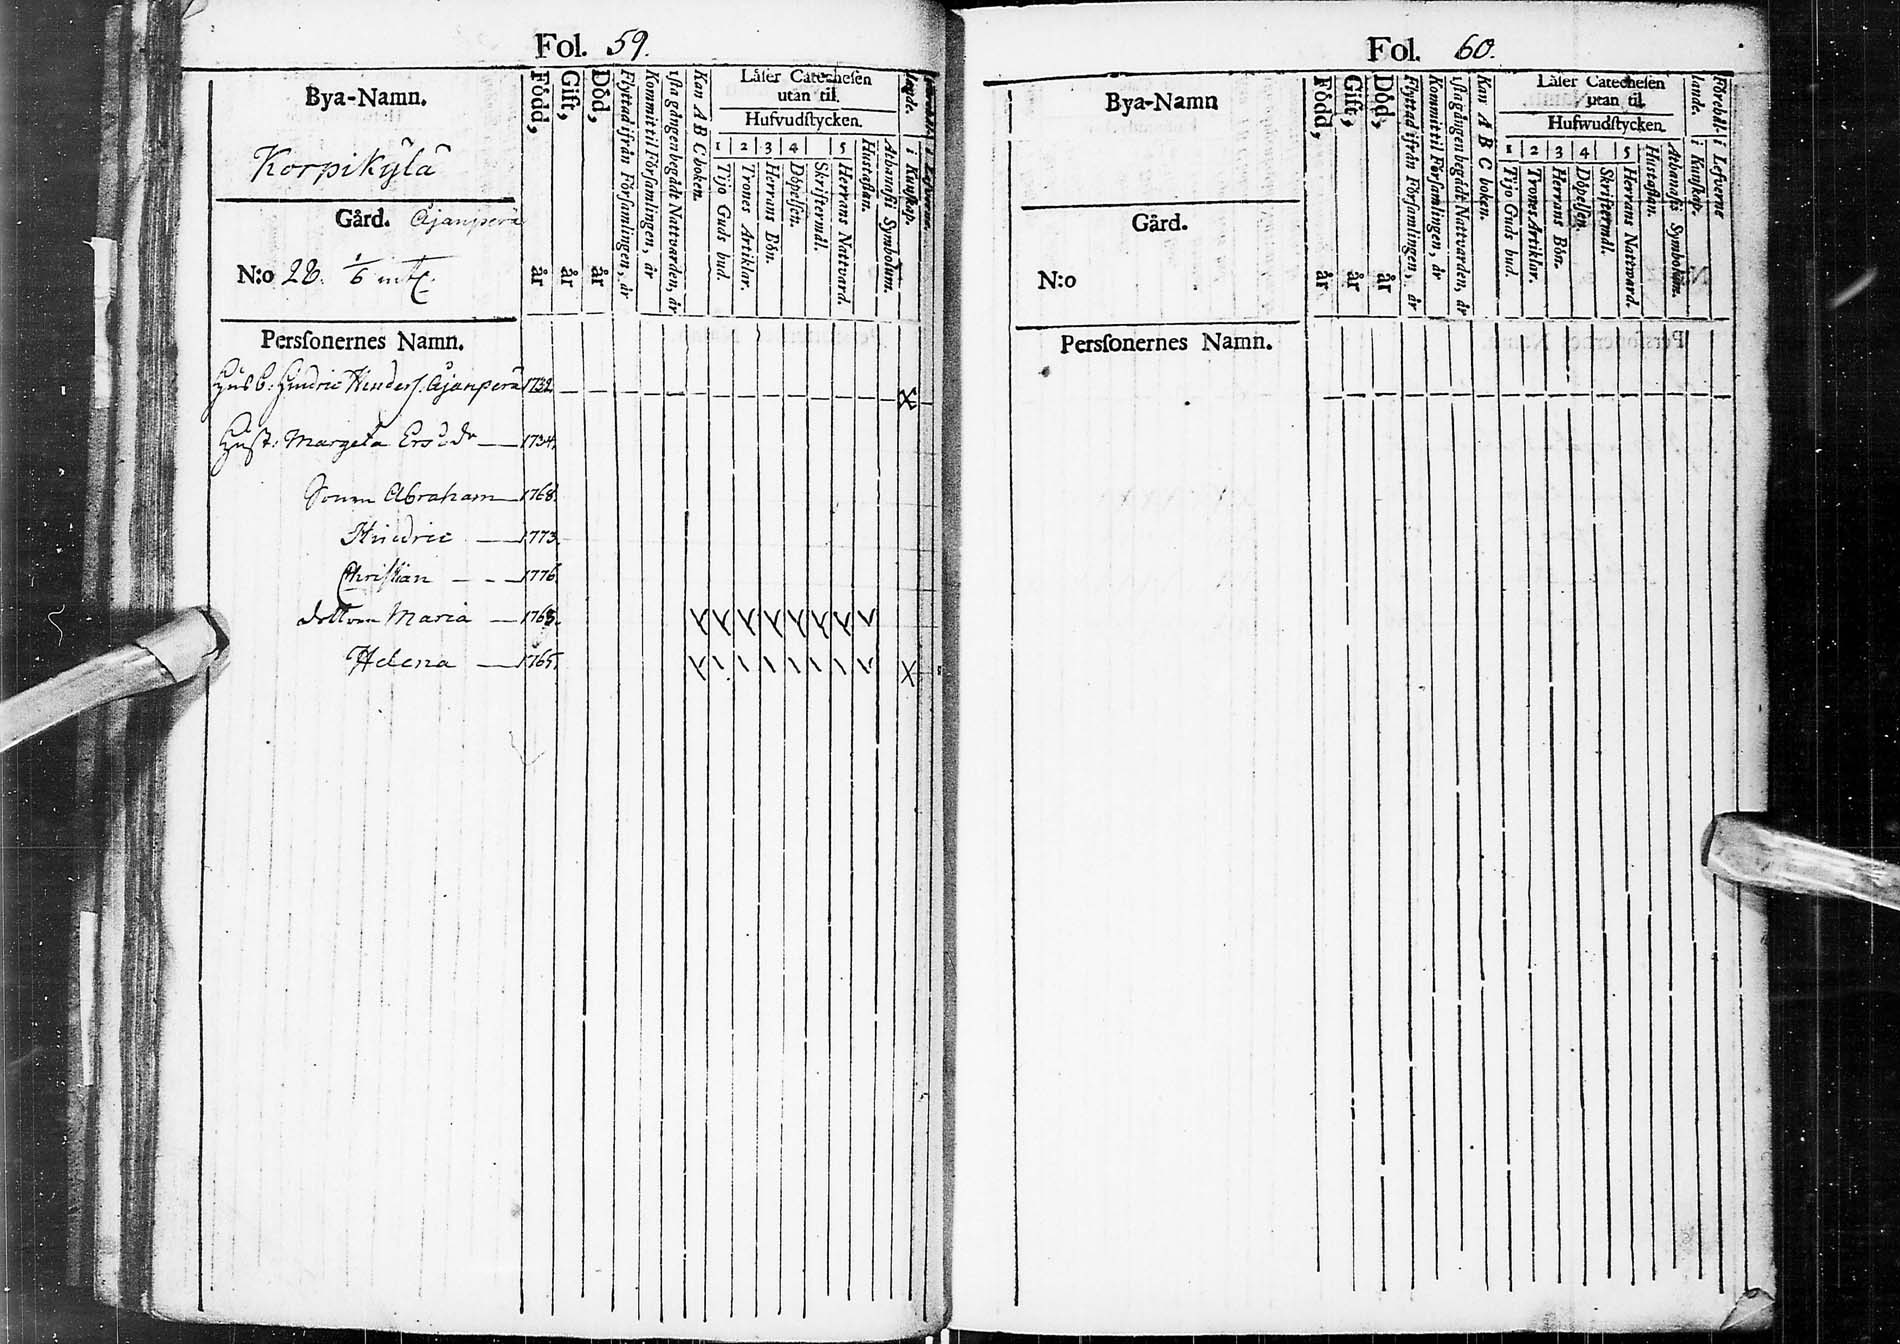 Fol. 59.
Bya-Namn.
Korpikylä
Gård. Äjanperä
N:o 28. 1/6 mtl.
Född, år
Gift, år
Död, år
Flyttad ifrån Församlingen, år
Kommit til Församlingen, år
1sta gången begådt Nattvarden, år
Kan A B C boken.
Låser Catechesen
utan til.
Hufvudstycken.
1 Tijo Guds bud.
2 Trones Artiklar.
3 Herrans Bön.
4 Döpelsen.
Skriftermål.
5 Herrans Nattvard.
Hustaflan.
Athanasii Symbolum.
i Kunskap.
i Lefverne.
Perssonernes Namn.
Husb: Hindric Hinders. Äjanperä 1732
Hust: Margeta Ersd:r 1734.
Sonen Abraham 1768.
Hindric 1773.
Christian 1776.
dottren Maria 1763.
Helena 1765.
Fol. 60.
Bya-Namn
Gård.
N:o
Född, år
Gift, år
Död, år
Flyttad ifrån Församlingen, år
Kommit til Församlingen, år
1sta gången begådt Nattvarden, år
Kan A B C boken.
Låser Catechesen
utan til.
Hufwudstycken.
1 Tijo Guds bud.
2 Trones Artiklar.
3 Herrans Bön.
4 Döpelsen.
Skriftermål.
5 Herrans Nattward.
Hustaflan.
Athanasii Symbolum.
Förehål-
lande.
i Kunskap.
i Lefverne
Perssonernes Namn.